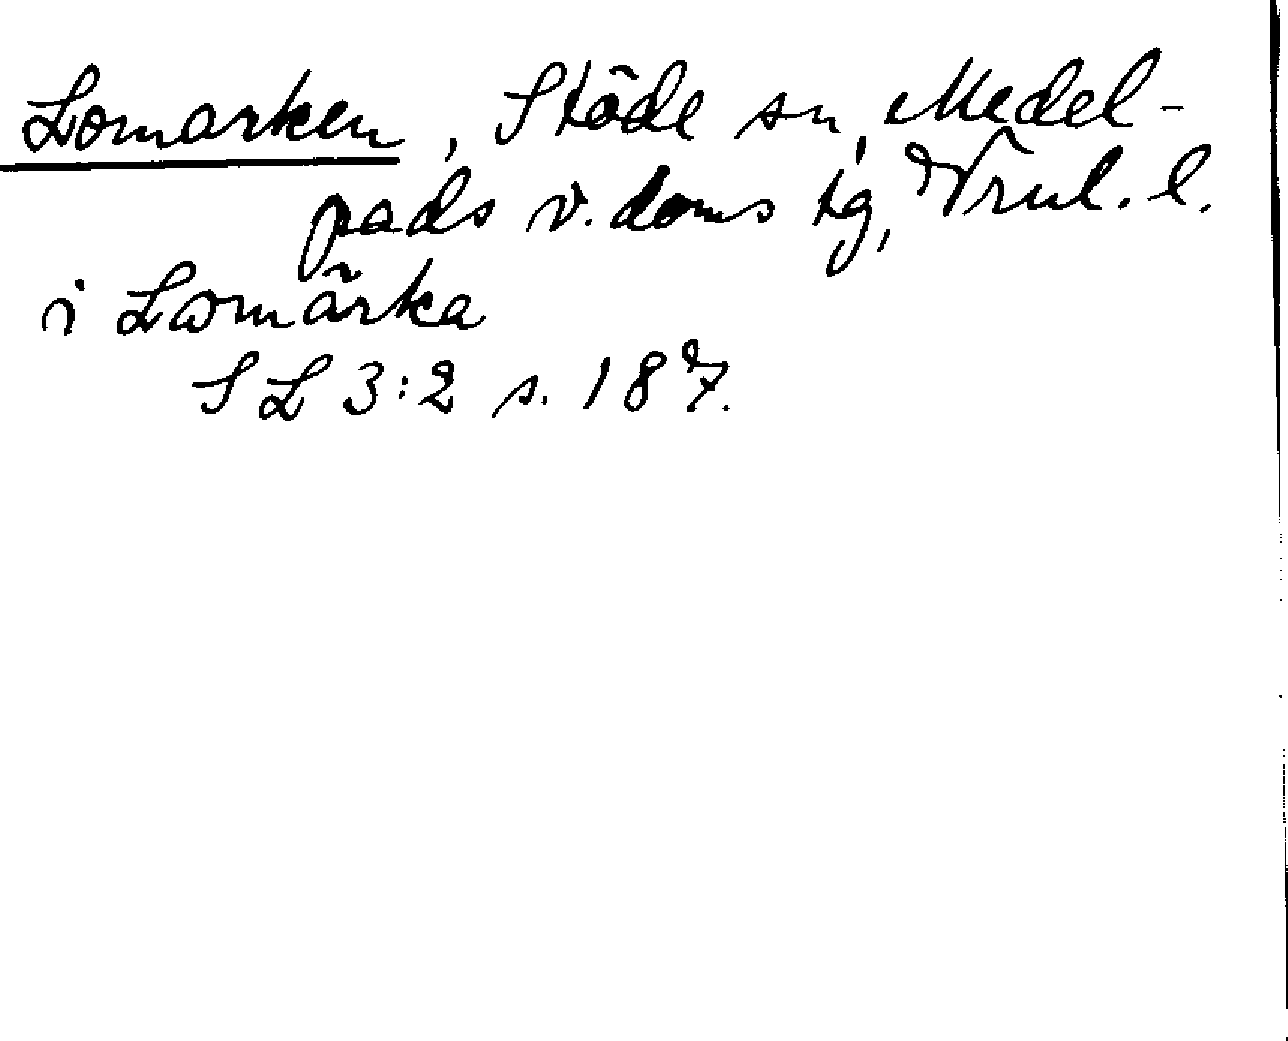 Lomarken, Stöde sn, Medel-
pads v. doms tg, Vrnl. l.
i Lomärka
SL 3:2 s. 187.